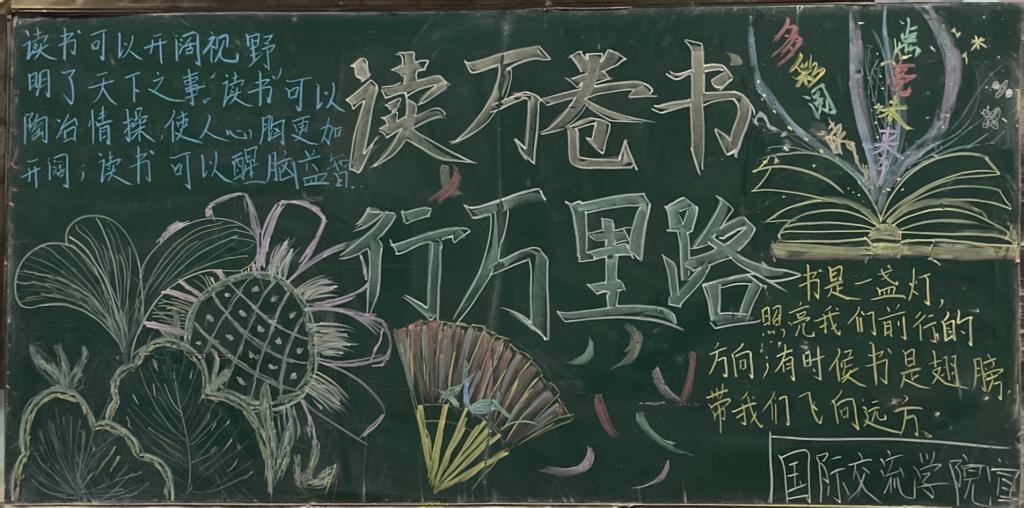 读书可以开阔视野
明了天下之事;读书可以
陶冶情操,使人心胸更加
开阔;读书可以醒脑益智
读万卷书
行万里路
多彩阅读
点亮未来
书是一盏灯,
照亮我们前行的
方向;有时候书是翅膀
带我们飞向远方。
国际交流学院宣